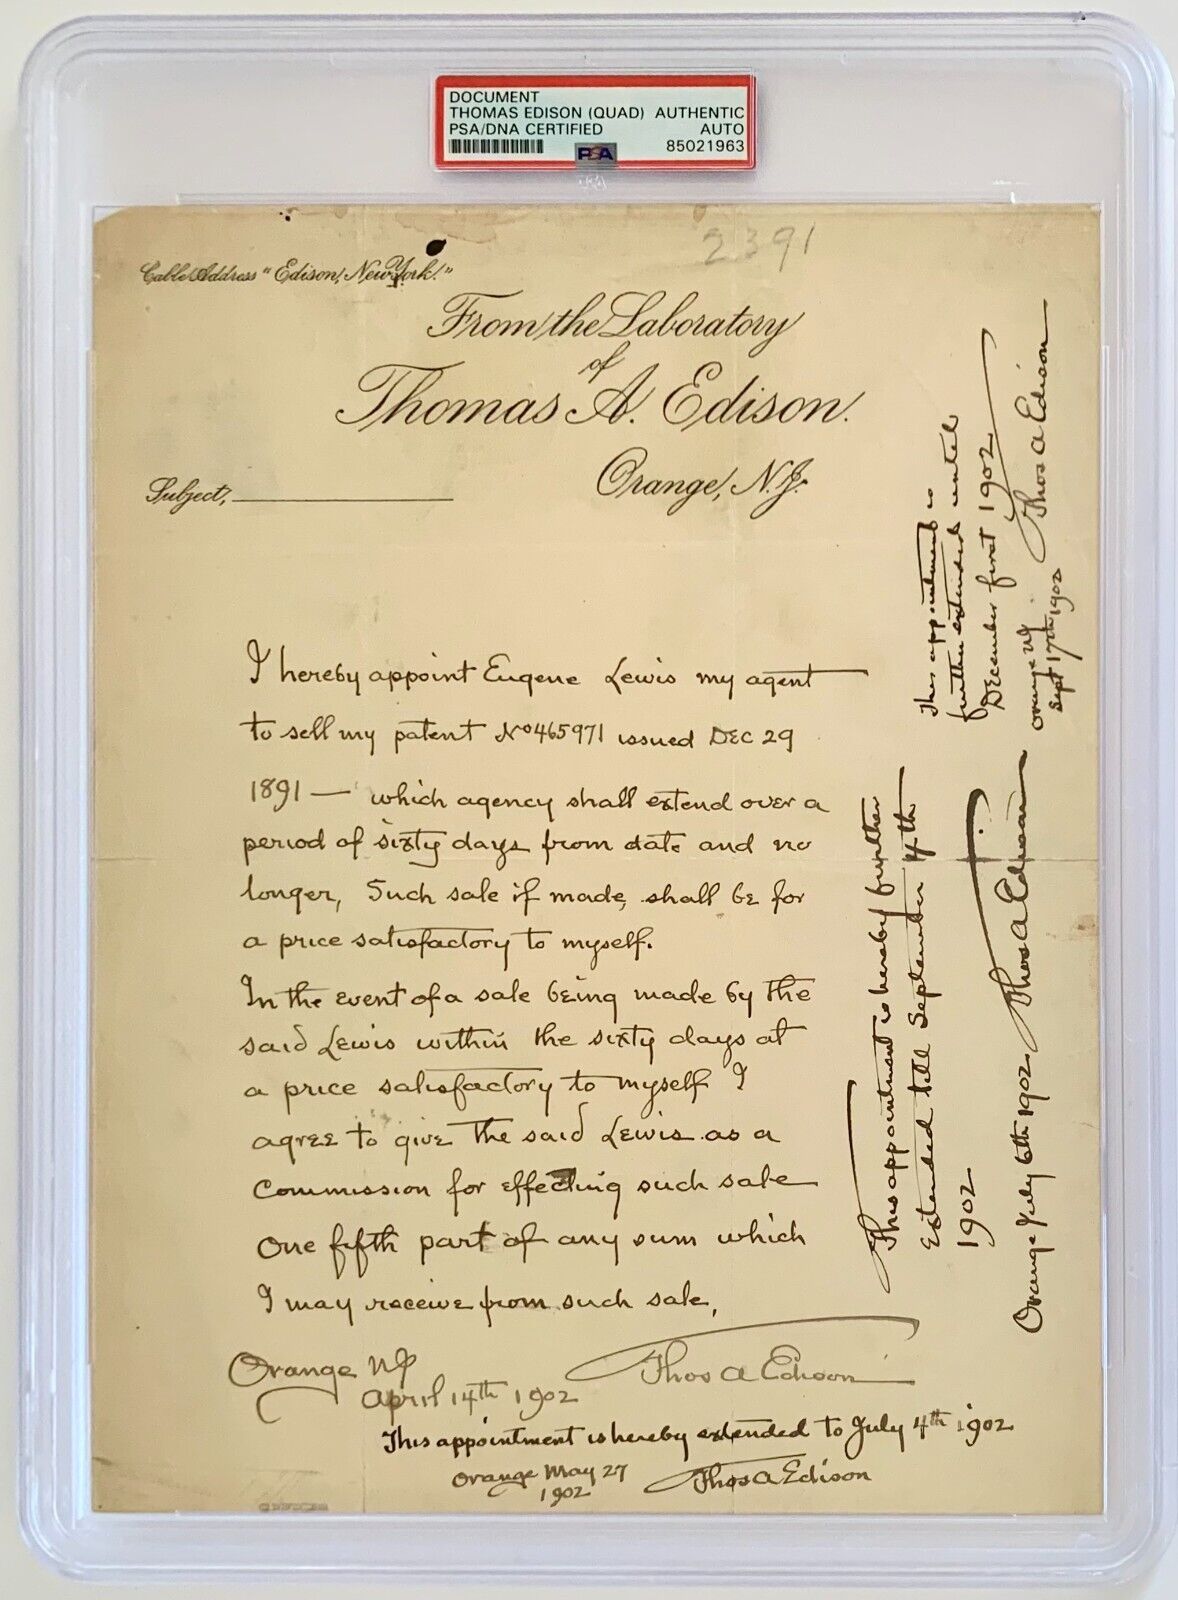 DOCUMENT
THOMAS EDISON (QUAD) AUTHENTIC
PSA/DNA CERTIFIED AUTO
85021963
PSA
2391
Cable Address "Edison, New York."
From the Laboratory
of
Thomas A. Edison.
Orange, N.J.
Subject,
I hereby appoint Eugene Lewis my agent
to sell my patent No 465971 issued DEC 29
1891 — which agency shall extend over a
period of sixty days from date and no
longer, Such sale if made, shall be for
a price satisfactory to myself.
In the event of a sale being made by the
said Lewis within the sixty days at
a price satisfactory to myself I
agree to give the said Lewis as a
Commission for effecting such sale
One fifth part of any sum which
I may receive from such sale,
Orange NJ
April 14th 1902
Thos A Edison
This appointment is hereby extended to July 4th 1902
Orange May 27
1902
Thos A Edison
This appointment is hereby further
Extended till September 4th
1902
Orange July 6th 1902 Thos A Edison
This appointment is
further extended until
December first 1902
Orange NJ
Sept 17th 1902
Thos A Edison